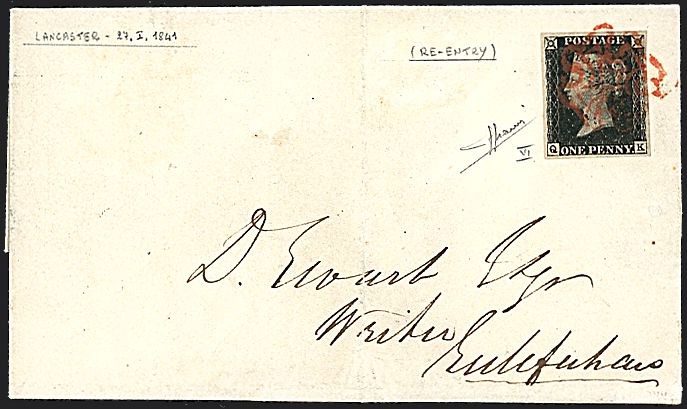 LANCASTER - 27. I. 1841
(RE-ENTRY)
POSTAGE
Q ONE PENNY K
VI
D. Ewart Esqr
Writer